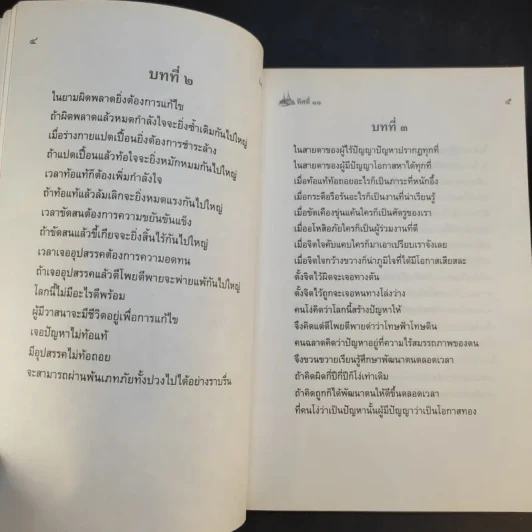 ๔
บทที่ ๒
ในยามผิดพลาดยิ่งต้องการแก้ไข
ถ้าผิดพลาดแล้วหมดกำลังใจจะยิ่งซ้ำเติมกันไปใหญ่
เมื่อร่างกายแปดเปื้อนยิ่งต้องการชำระล้าง
ถ้าแปดเปื้อนแล้วท้อใจจะยิ่งหมักหมมกันไปใหญ่
เวลาท้อแท้ก็ต้องเพิ่มกำลังใจ
ถ้าท้อแท้แล้วล้มเลิกจะยิ่งหมดแรงกันไปใหญ่
เวลาขัดสนต้องการความขยันขันแข็ง
ถ้าขัดสนแล้วขี้เกียจจะยิ่งสิ้นไร้กันไปใหญ่
เวลาเจออุปสรรคต้องการความอดทน
ถ้าเจออุปสรรคแล้วตีโพยตีพายจะพ่ายแพ้กันไปใหญ่
โลกนี้ไม่มีอะไรดีพร้อม
ผู้มีวาสนาจะมีชีวิตอยู่เพื่อการแก้ไข
เจอปัญหาไม่ท้อแท้
มีอุปสรรคไม่ท้อถอย
จะสามารถผ่านพ้นเภทภัยทั้งปวงไปได้อย่างราบรื่น
ทิศที่ ๑๑
๕
บทที่ ๓
ในสายตาของผู้ไร้ปัญญาปัญหาปรากฏทุกที่
ในสายตาของผู้มีปัญญาโอกาสหาได้ทุกที่
เมื่อท้อแท้ท้อถอยอะไรก็เป็นภาระที่หนักอึ้ง
เมื่อกระตือรือร้นอะไรก็เป็นงานที่น่าเรียนรู้
เมื่อขัดเคืองขุ่นแค้นใครก็เป็นศัตรูของเรา
เมื่ออโหสิอภัยใครก็เป็นผู้ร่วมงานที่ดี
เมื่อจิตใจคับแคบใครก็มาเอาเปรียบเราจังเลย
เมื่อจิตใจกว้างขวางก็น่าภูมิใจที่ได้มีโอกาสเสียสละ
ตั้งจิตไว้ผิดจะเจอทางตัน
ตั้งจิตไว้ถูกจะเจอหนทางโล่งว่าง
คนโง่คิดว่าโลกนี้สร้างปัญหาให้
จึงคิดแต่ตีโพยตีพายด่าว่าโทษฟ้าโทษดิน
คนฉลาดคิดว่าปัญหาอยู่ที่ความไร้สมรรถภาพของตน
จึงขวนขวายเรียนรู้ศึกษาพัฒนาตนตลอดเวลา
ถ้าคิดผิดกี่ปีกี่ปีก็โง่เท่าเดิม
ถ้าคิดถูกก็ได้พัฒนาตนให้ดีขึ้นตลอดเวลา
ที่คนโง่ว่าเป็นปัญหานั้นผู้มีปัญญาว่าเป็นโอกาสทอง